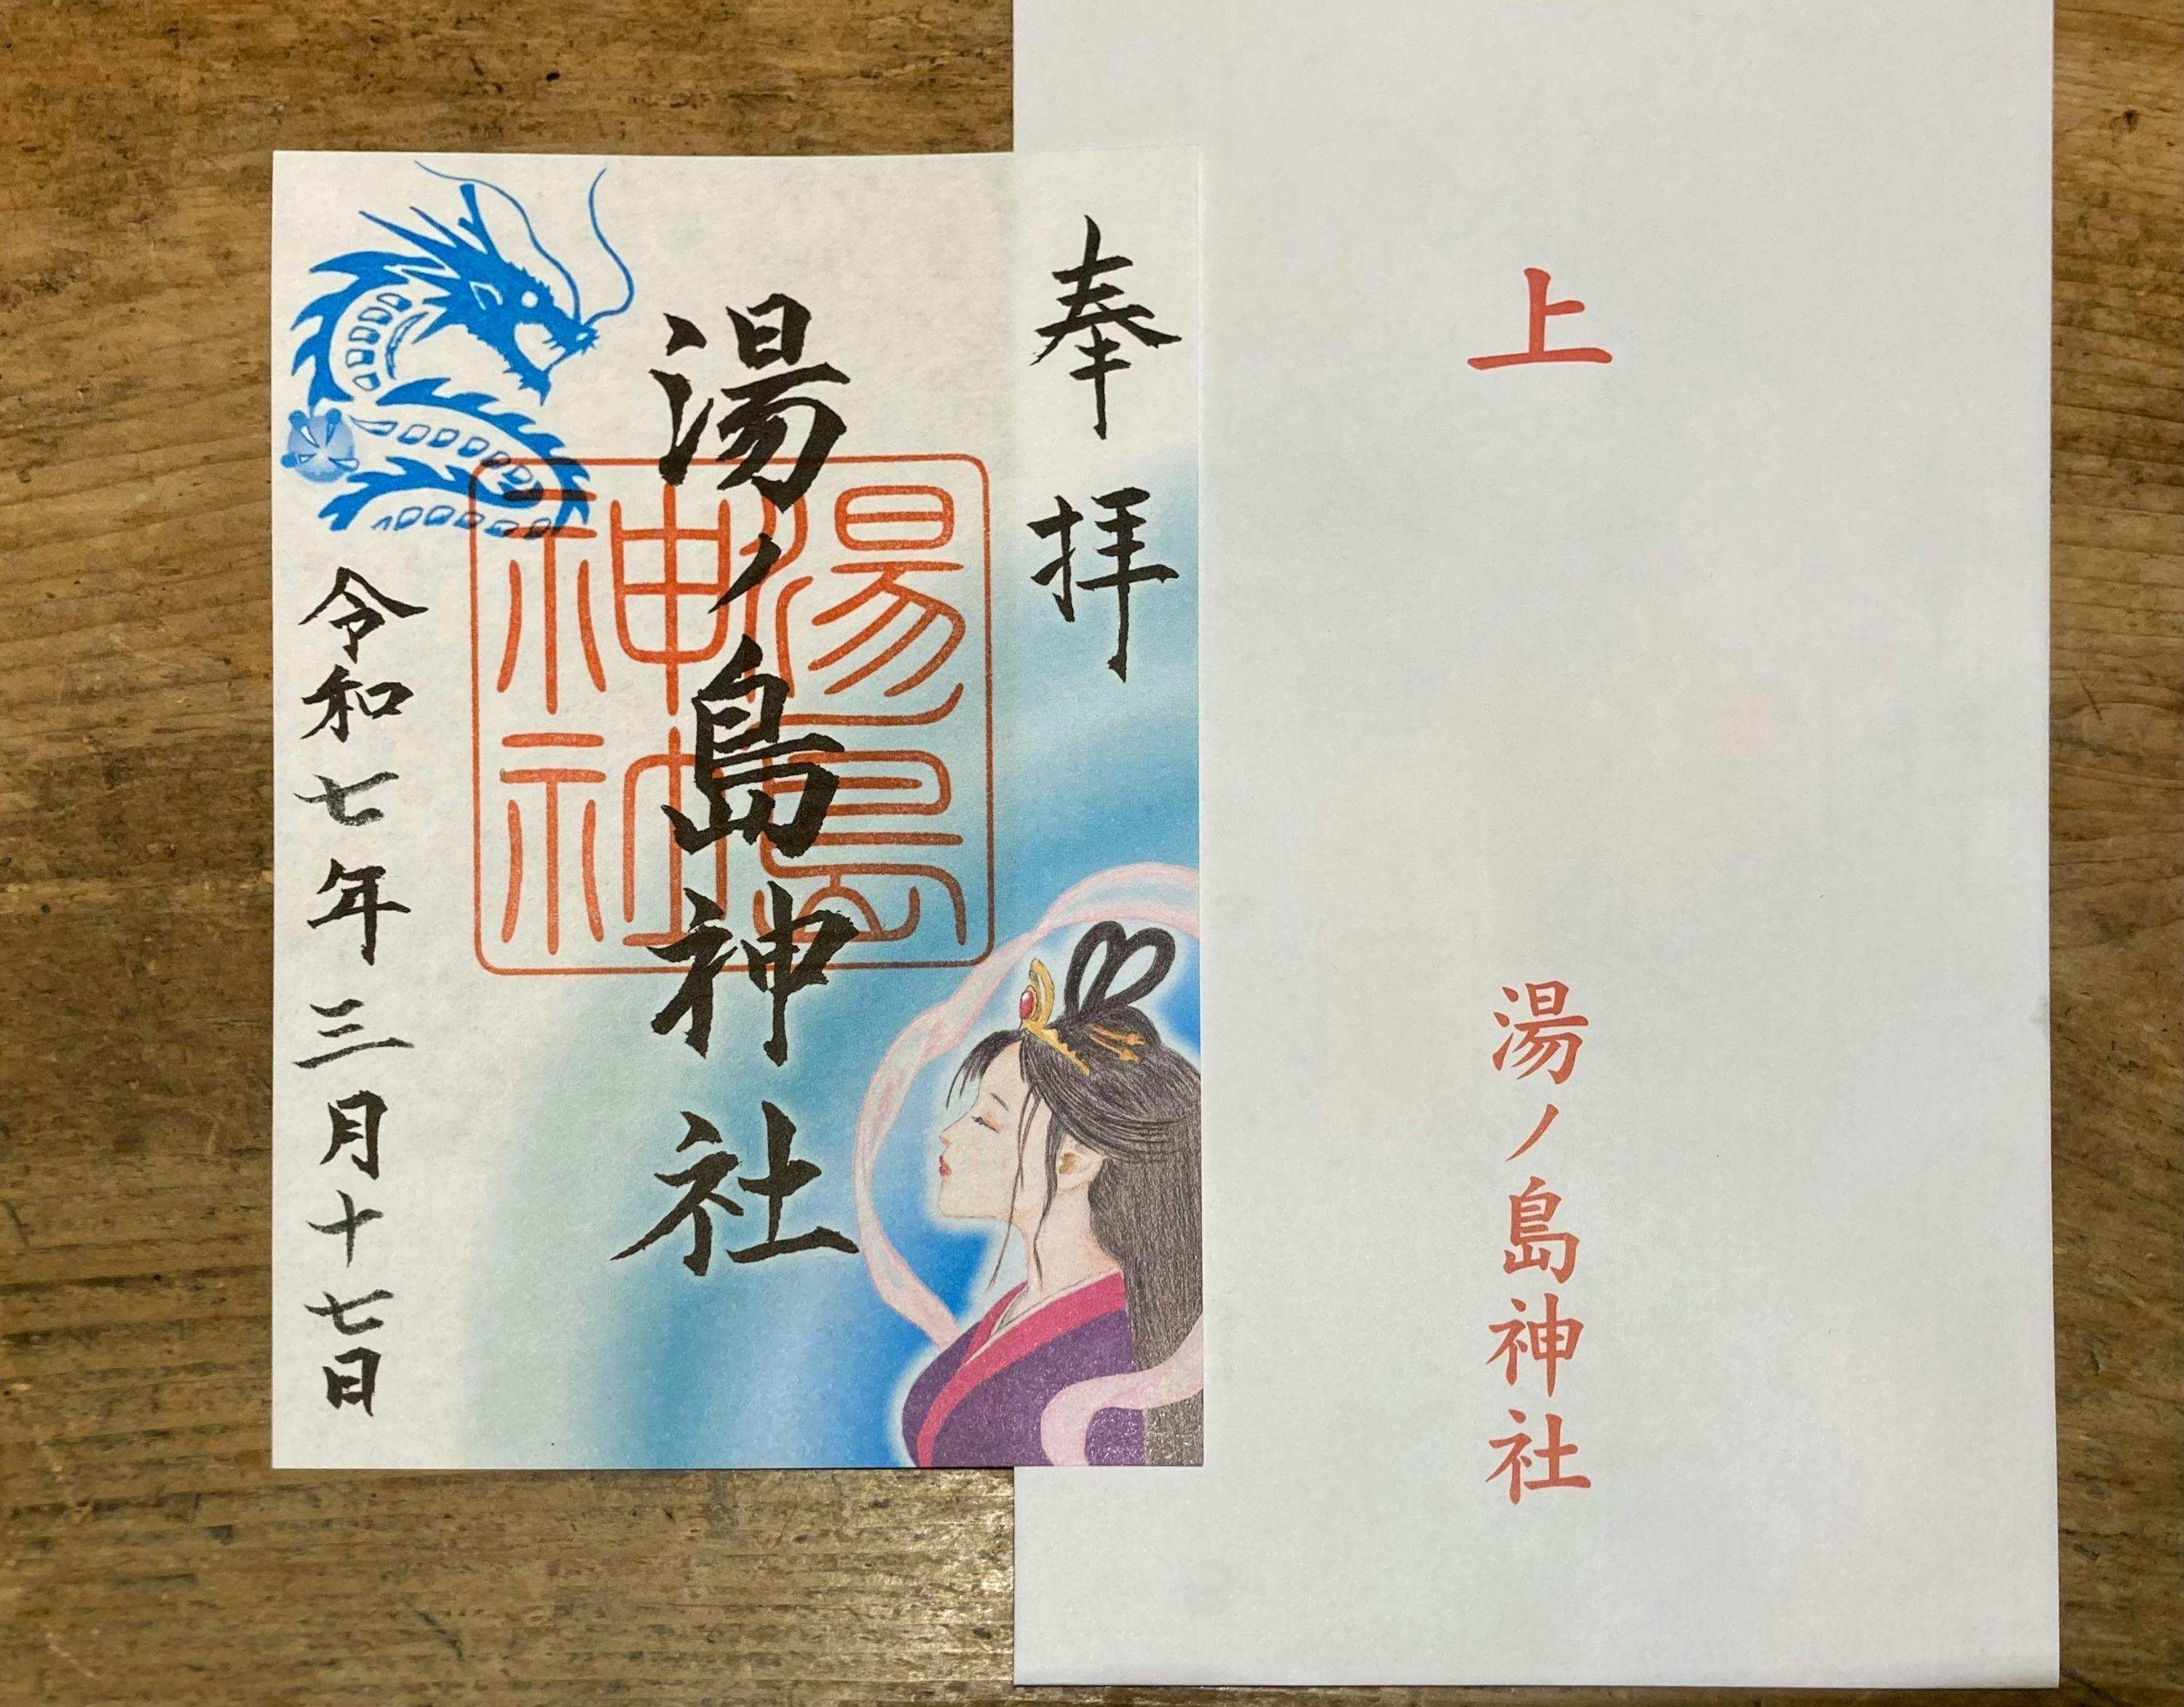 奉拝
湯ノ島神社
湯島
神社
令和七年三月十七日
上
湯ノ島神社